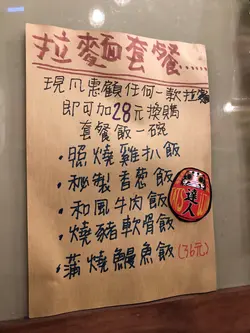 拉麵套餐......
現凡惠顧任何一款拉麵
即可加28元換購
套餐飯一碗
·照燒雞扒飯
·秘製香葱飯
·和風牛肉飯
·燒豬軟骨飯
·蒲燒鰻魚飯(36元)
達人